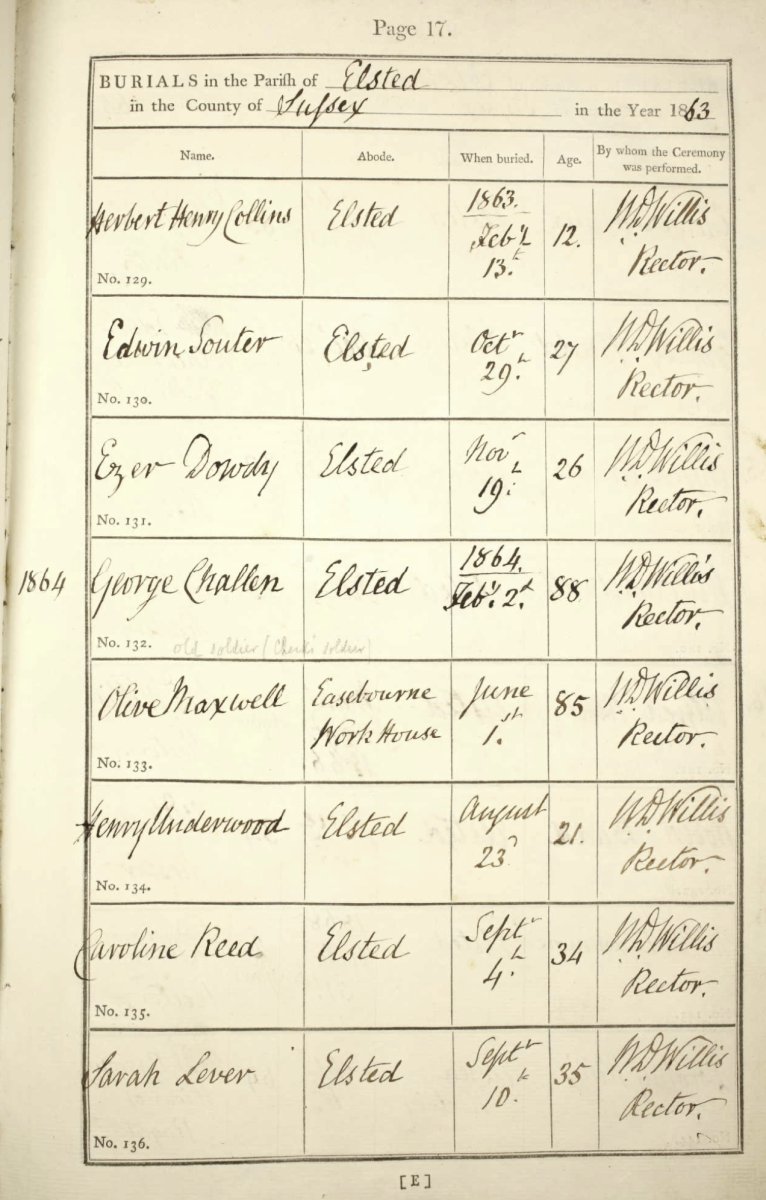 Page 17.
BURIALS in the Pariſh of Elsted
in the County of Suſsex in the Year 1863
Name. Abode. When buried. Age. By whom the Ceremony
was performed.
Herbert Henry Collins Elsted 1863. Feby 13.th 12. WD Willis
Rector.
No. 129.
Edwin Souter Elsted Octr 29.th 27 WD Willis
Rector.
No. 130.
Ezer Dowdy Elsted Novr 19.th 26 WD Willis
Rector.
No. 131.
1864 George Challen Elsted 1864. Feby. 2d 88 WD Willis
Rector.
No. 132. old soldier ( soldier)
Olive Maxwell Easebourne June 85 WD Willis
Work House 1.st Rector.
No. 133.
Henry Underwood Elsted August 23d 21. WD Willis
Rector.
No. 134.
Caroline Reed Elsted Septr 4.th 34 WD Willis
Rector.
No. 135.
Sarah Lever Elsted Septr 10.th 35 WD Willis
Rector.
No. 136.
[E]